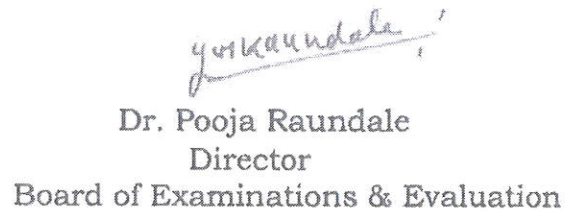 Dr. Pooja Raundale
Director
Board of Examinations & Evaluation